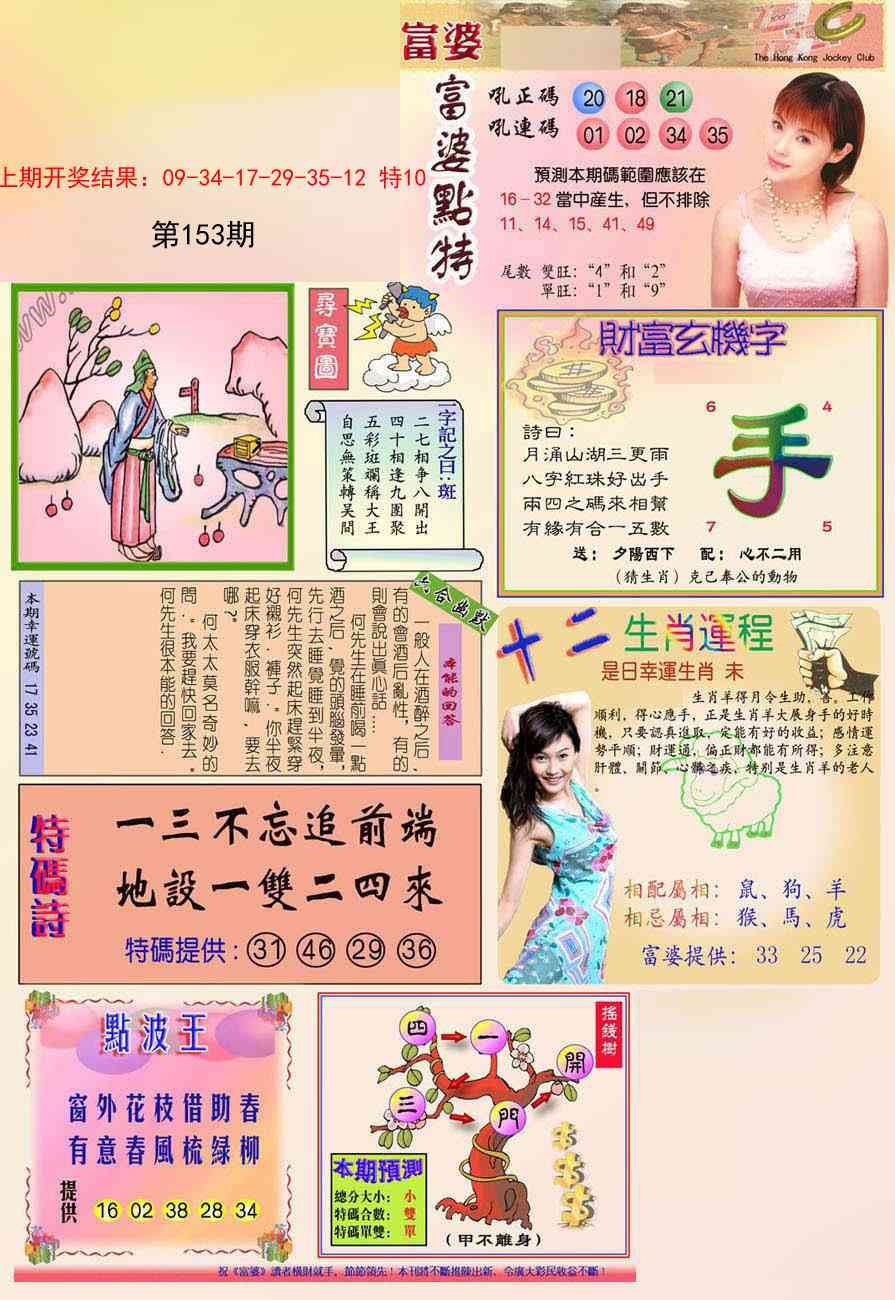 富婆
The Hong Kong Jockey Club
富婆點特
吼正碼 20 18 21
吼連碼 01 02 34 35
預測本期碼範圍應該在
16-32 當中産生，但不排除
11、14、15、41、49
尾數 雙旺：“4”和“2”
單旺：“1”和“9”
上期开奖结果：09-34-17-29-35-12 特10
第153期
尋寶圖
一字記之曰：斑
二七相爭八開出
四十相逢九團聚
五彩斑斕稱大王
自思無策轉吴間
財富玄機字
詩曰：
月涌山湖三更雨
八字紅珠好出手
兩四之碼來相幫
有緣有合一五數
6 4
手
7 5
送：夕陽西下 配：心不二用
（猜生肖）克己奉公的動物
六合幽默
本能的回答
一般人在酒醉之后、
有的會酒后亂性，有的
則會説出真心話....
何先生在睡前喝一點
酒之后，覺的頭腦發暈，
先行去睡覺睡到半夜，
何先生突然起床趕緊穿
好襯衫．褲子．“你半夜
起床穿衣服幹嘛、要去
哪?”
何太太莫名奇妙的
問：“我要趕快回家去。”
何先生很本能的回答.
本期幸運號碼 17 35 23 41
十二生肖運程
是日幸運生肖 未
生肖羊得月令生助，喜。工作
順利，得心應手，正是生肖羊大展身手的好時
機，只要認真進取，定能有好的收益；感情運
勢平順；財運通，偏正財都能有所得；多注意
肝體、關節、心髒之疾，特别是生肖羊的老人
。
相配屬相：鼠、狗、羊
相忌屬相：猴、馬、虎
富婆提供：33 25 22
特碼詩
一三不忘追前端
地設一雙二四來
特碼提供：31 46 29 36
點波王
窗外花枝借助春
有意春風梳绿柳
提供 16 02 38 28 34
搖錢樹
四 一 開
三 門
本期預測
總分大小：小
特碼合數：雙
特碼單雙：單
（甲不離身）
祝《富婆》讀者横財就手，節節領先！本刊將不斷推陳出新、令廣大彩民收益不斷！